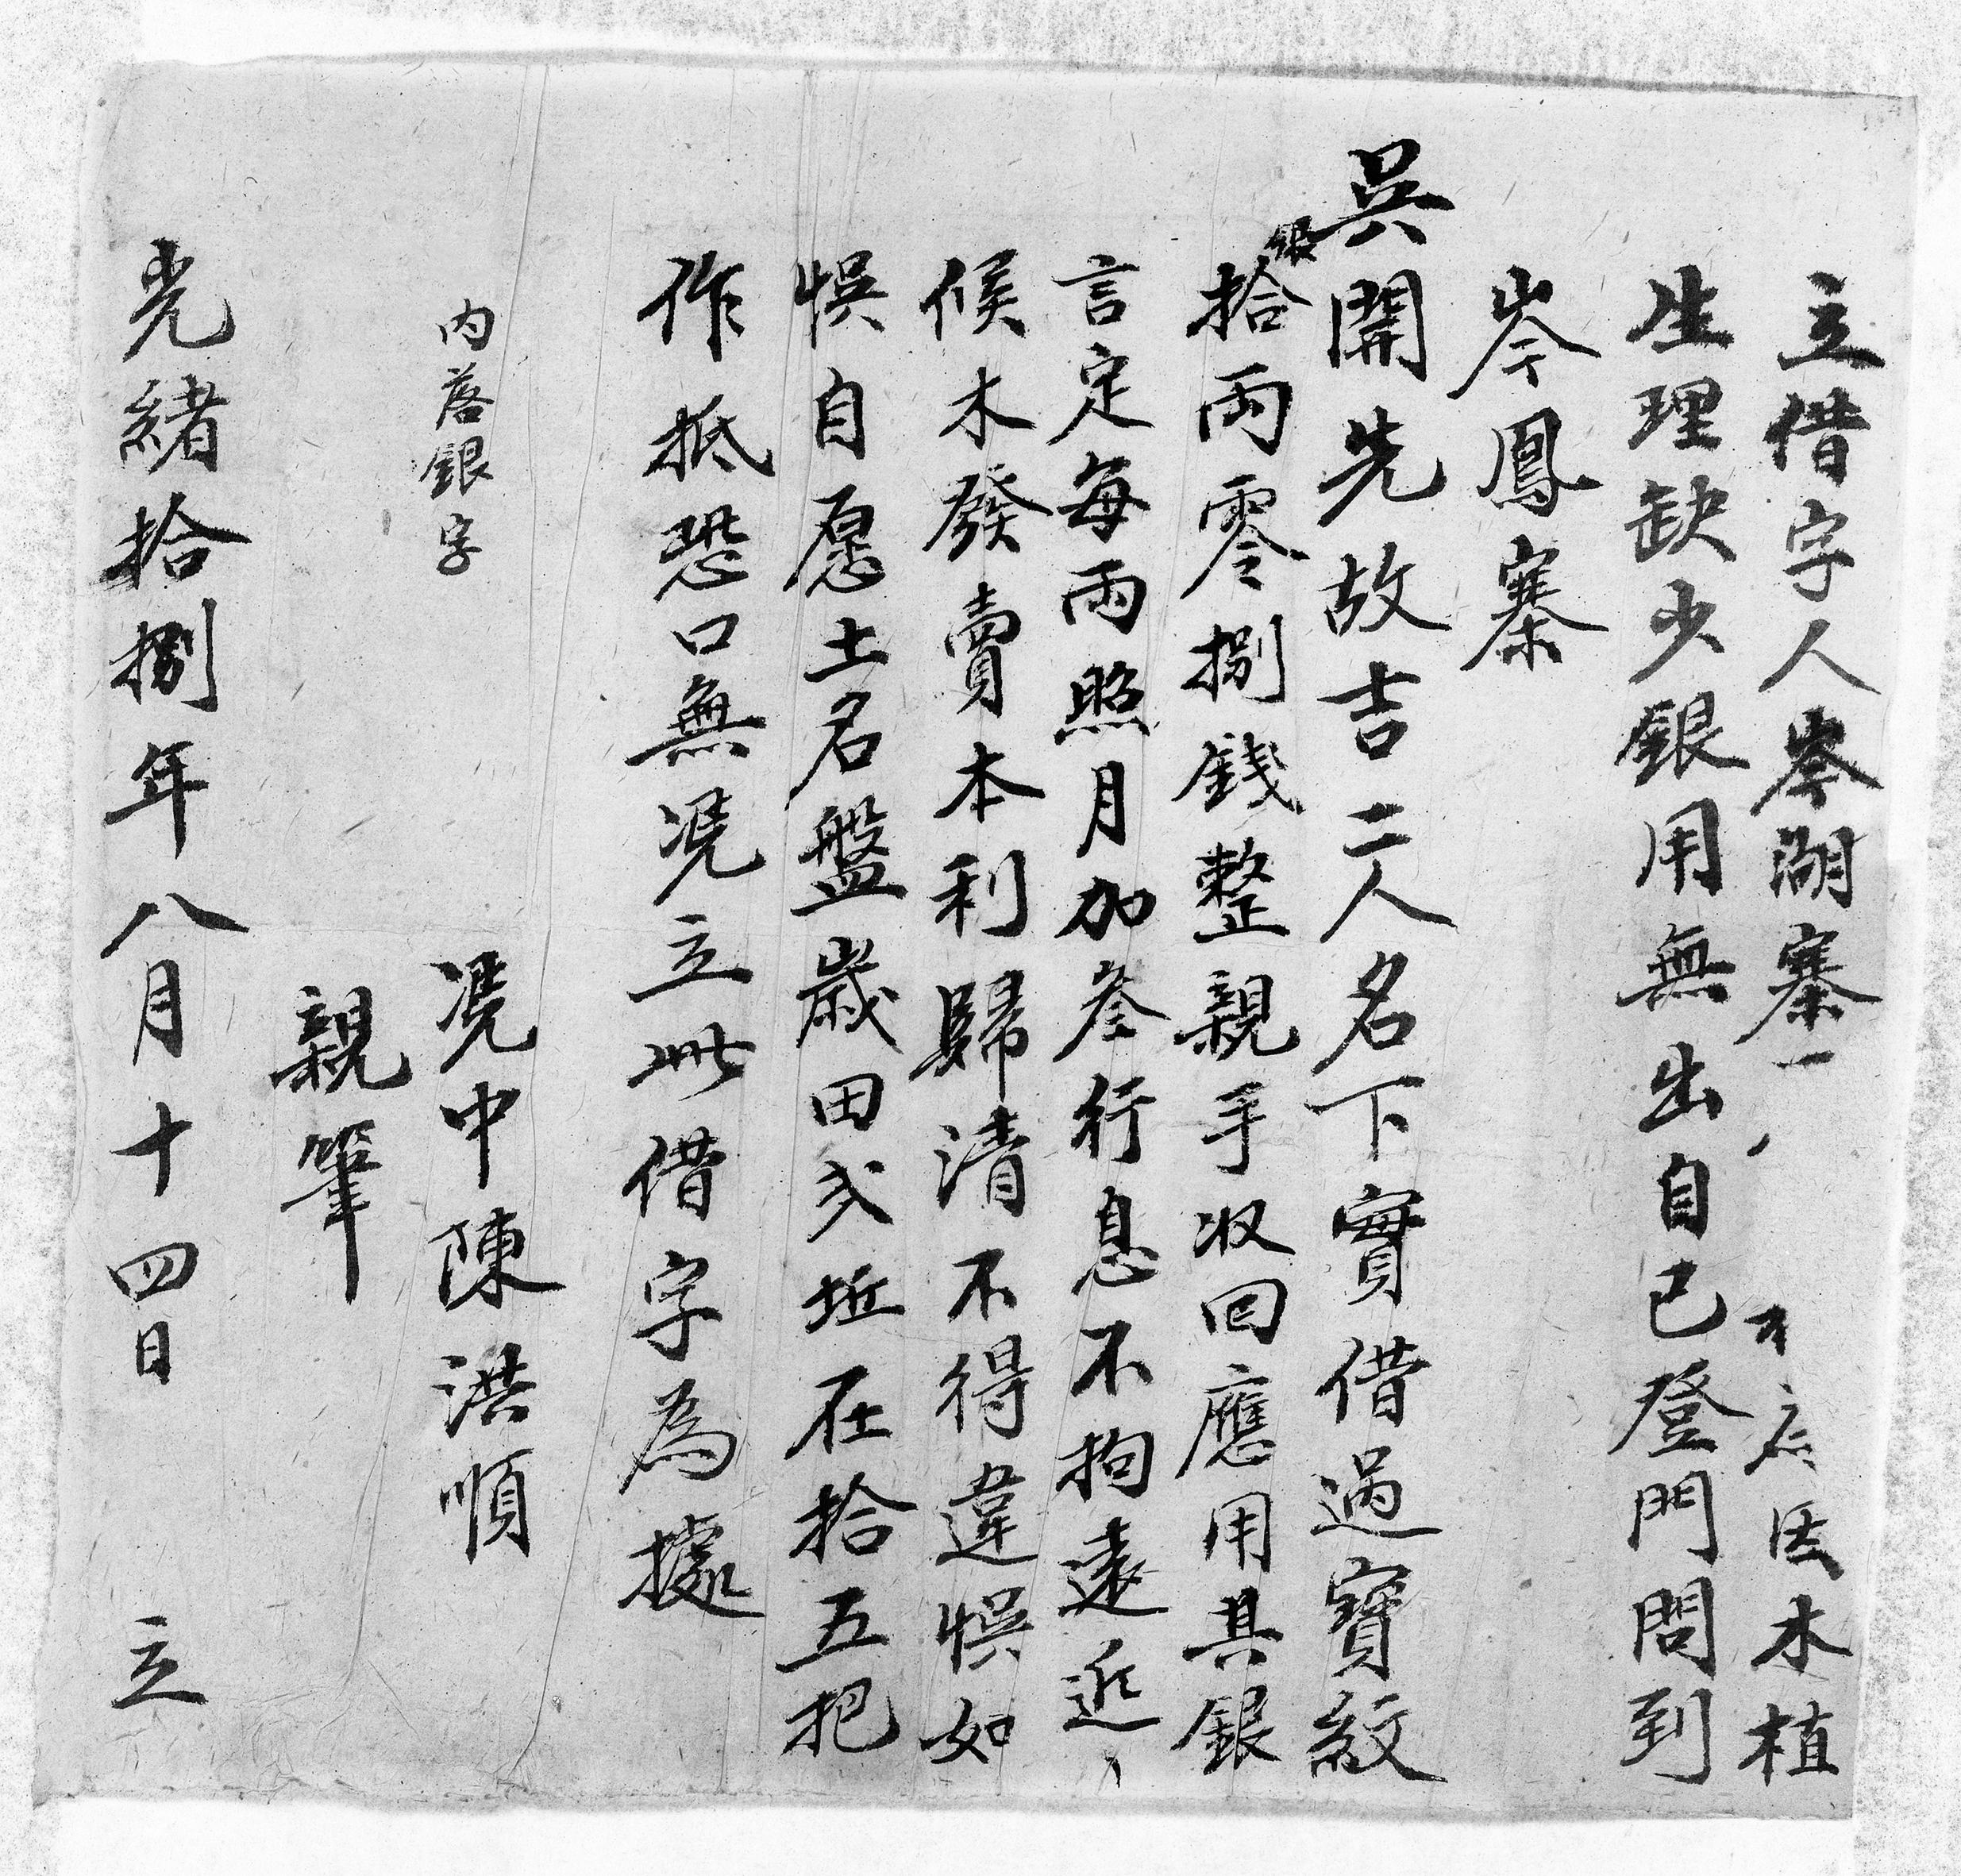 立借字人岑湖寨因木植
生理缺少銀用無出自己登門問到
岑鳳寨
吳開先故吉二人名下實借過寶紋
銀拾兩零捌錢整親手收回應用其銀
言定每兩照月加叁行息不拘遠近
候木發賣本利歸清不得違悞如
悞自愿土名盤歲田弍坵在拾五把
作抵恐口無凴立此借字為據
內落銀字
凴中陳洪順
親筆
光緒拾捌年八月十四日 立